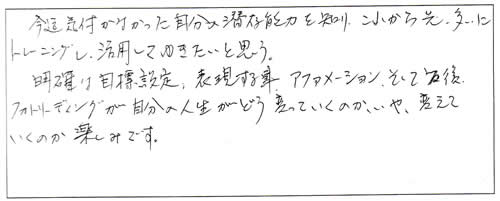 今迄気付かなかった自分の潜在能力を知り、これから先、多いに
トレーニングし、活用してゆきたいと思う。
明確な目標設定、表現する事、アファメーション、そして今後、
フォトリーディングが自分の人生がどう変っていくのか、いや、変えて
いくのか楽しみです。